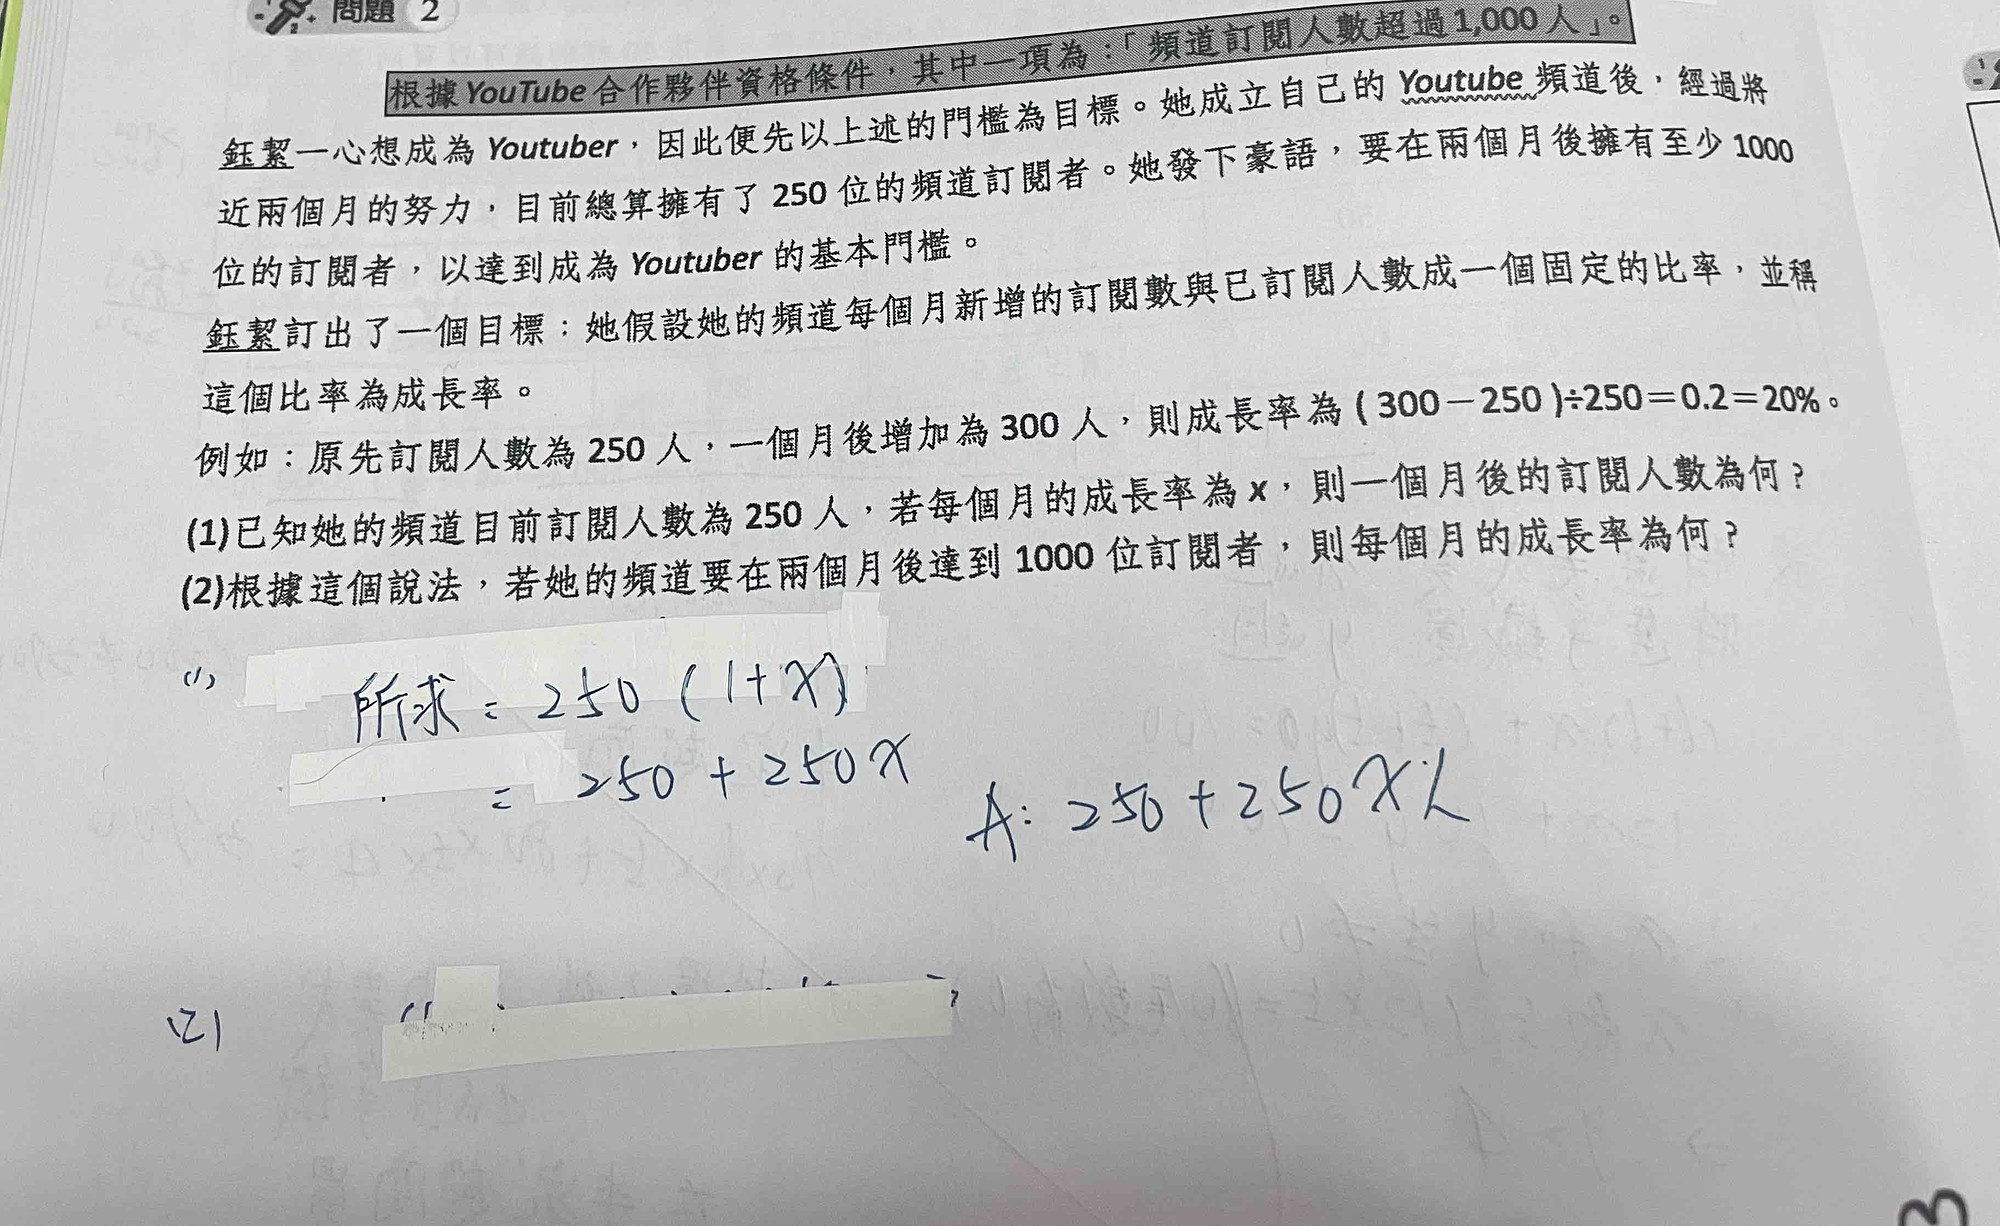 問題 2
根據 YouTube 合作夥伴資格條件，其中一項為：「頻道訂閱人數超過 1,000 人」。
鈺絜一心想成為 Youtuber，因此便先以上述的門檻為目標。她成立自己的 Youtube 頻道後，經過將
近兩個月的努力，目前總算擁有了 250 位的頻道訂閱者。她發下豪語，要在兩個月後擁有至少 1000
位的訂閱者，以達到成為 Youtuber 的基本門檻。
鈺絜訂出了一個目標：她假設她的頻道每個月新增的訂閱數與已訂閱人數成一個固定的比率，並稱
這個比率為成長率。
例如：原先訂閱人數為 250 人，一個月後增加為 300 人，則成長率為 ( 300－250 )÷250＝0.2＝20%。
(1)已知她的頻道目前訂閱人數為 250 人，若每個月的成長率為 x，則一個月後的訂閱人數為何？
(2)根據這個說法，若她的頻道要在兩個月後達到 1000 位訂閱者，則每個月的成長率為何？
(1)
所求 = 250 (1+x)
= 250 + 250x
A: 250 + 250x人
(2)
3